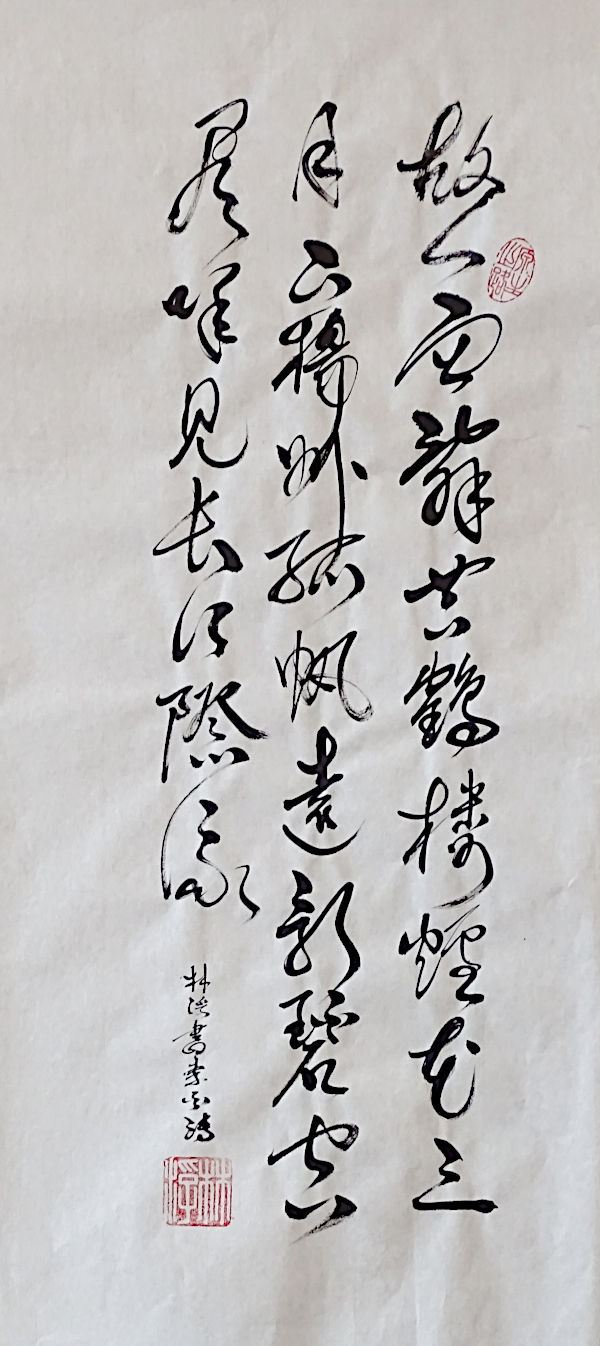 故人西辭黃鶴樓煙花三
月下揚州孤帆遠影碧空
盡唯見長江際流
林書李白詩